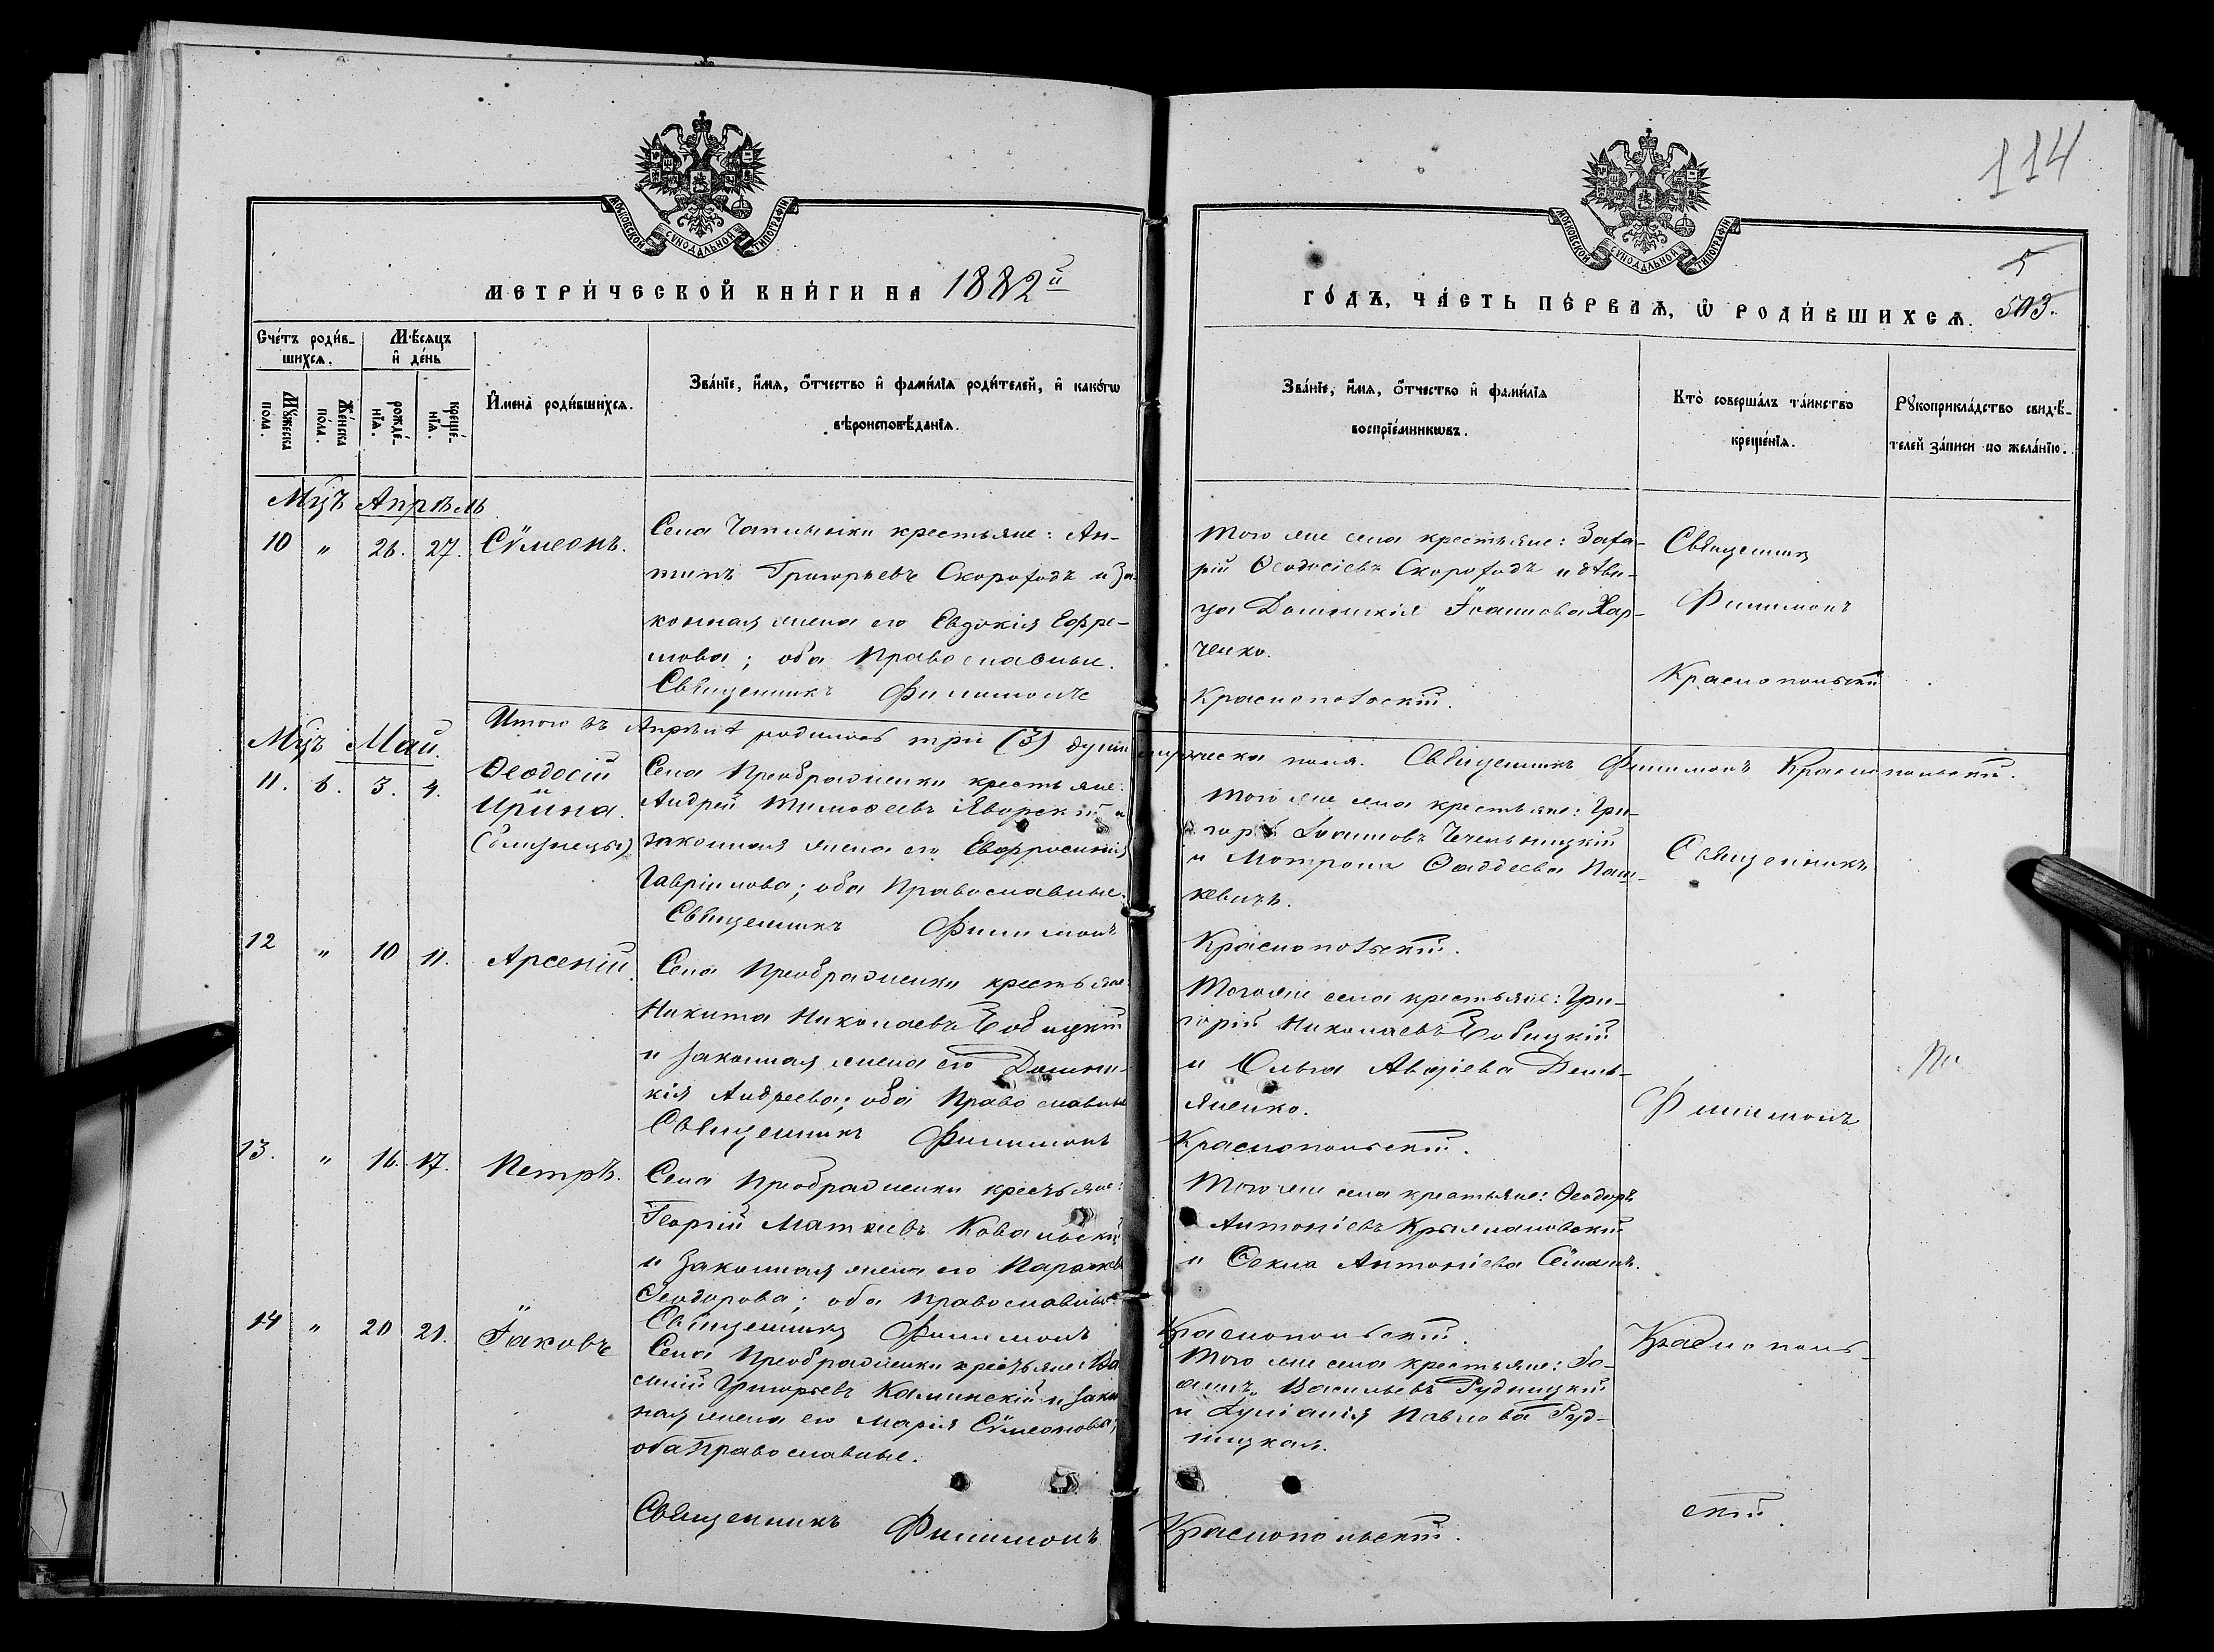 114
МОСКОВСКОЙ СУНОДАЛЬНОЙ ТИПОГРАФІИ
МОСКОВСКОЙ СУНОДАЛЬНОЙ ТИПОГРАФІИ
МЕТРИ́ЧЕСКОЙ КНИ́ГИ НА 1882й
5
ГО́ДЪ, ЧА́СТЬ ПЕ́РВАѦ, Ѽ РОДИ́ВШИХСѦ. 503.
Сче́тъ роди́в-
шихсѧ.
Мꙋ́жеска
пола.
Же́нска
по́ла.
Мѣ́сѧцъ
и҆ де́нь
рожде́-
нїѧ.
креще́-
нїѧ.
И҆мена̀ роди́вшихсѧ.
Зва́нїе, и҆́мѧ, ѻ҆́тчество и҆ фами́лїѧ роди́телей, и҆ како́гѡ
вѣроисповѣ́данїѧ.
Зва́нїе, и҆́мѧ, ѻ҆́тчество и҆ фами́лїѧ
воспрїе́мникѡвъ.
Кто̀ соверша́лъ та́инство
креще́нїѧ.
Рꙋкоприкла́дство свидѣ́-
телей за́писи по жела́нїю.
Мцъ Апрѣль
10 " 26. 27. Сѵмеонъ.
крестьяне: Ан-
типъ Григорьевъ Скороходъ и за-
конная жена его Евдокія Ефре-
мова; оба Православные.
Священникъ Филимонъ
Того же села крестьяне: Заха-
рій Ѳеодосіевъ Скороходъ и дѣви-
ца Домникія Іоаннова Хар-
ченко.
Краснопольскій.
Священникъ
Филимонъ
Краснопольскій
Итого въ Апрѣлѣ родилось три (3) души мужеска пола. Священникъ Филимонъ Краснопольскій.
Мцъ Май.
11. 6. 3. 4. Ѳеодосій
Ирина.
(близнецы)
Села Преображенки крестьяне:
Андрей Тимоѳеевъ Яворскій и
законная жена его Евфросинія
Гавріилова; оба Православные.
Священникъ Филимонъ
Того же села крестьяне: Гри-
горій Іоанновъ Чечельницкій
и Матрона Ѳаддеева Паш-
кевичъ.
Краснопольскій.
Священникъ
12 " 10 11. Арсеній.
Села Преображенки крестьяне
Никита Николаевъ
и законная жена его Домни-
кія Андреева; оба Православные
Священникъ Филимонъ
Того же села крестьяне: Гри-
горій Николаевъ
и Ольга Демь-
яненко.
Краснопольскій.
Филимонъ
13. " 16. 17. Петръ.
Села Преображенки крестьяне:
Георгій Матѳіевъ Ковальскій
и законная жена его Параскева
Ѳеодорова; оба православные.
Священникъ Филимонъ
Того же села крестьяне: Ѳеодоръ
Антоніевъ Крыжановскій
и Ѳекла Антоніева
Краснопольскій.
14 " 20 21. Іаковъ
Села Преображенки крестьяне: Ва-
силій Григорьевъ Калинскій и закон-
ная жена его Марія Сѵмеонова;
оба православные.
Священникъ Филимонъ
Того же села крестьяне: Іо-
аннъ Васильевъ Рудницкій
и Павлова Руд-
ницкая.
Краснопольскій.
Краснополь-
скій.